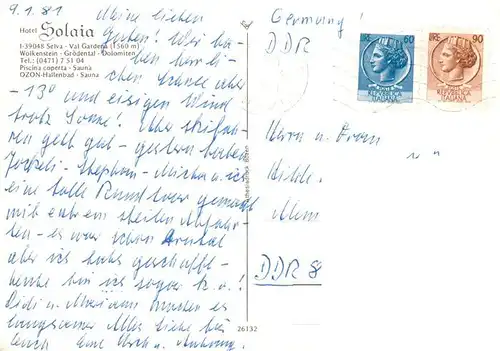 9.1.81 Meine lieben
Hotel Solaia
I-39048 Selva - Val Gardena (1560 m)
Wolkenstein - Grödental - Dolomiten
Tel.: (0471) 7 51 04
Piscina coperta - Sauna
OZON-Hallenbad - Sauna
Guten! Wir ha-
ben herrli-
chen Schnee aber
-13° und eisigen Wind
trotz Sonne! Aber skifah-
ren geht gut - gestern haben
Stephan - u. ich
eine tolle Rundtour gemacht
mit extrem steilen Abfahr-
ten - es war schon brutal
aber ich habs geschafft -
heute bin ich sogar k.o.!
Didi u. Mariann mussten es
langsamer Alles Liebe für
Euch Eure u.
26132
Germany!
DDR
LIRE 60
REPUBBLICA
ITALIANA
LIRE 90
REPUBBLICA
ITALIANA
Herrn u. Frau
DDR 8